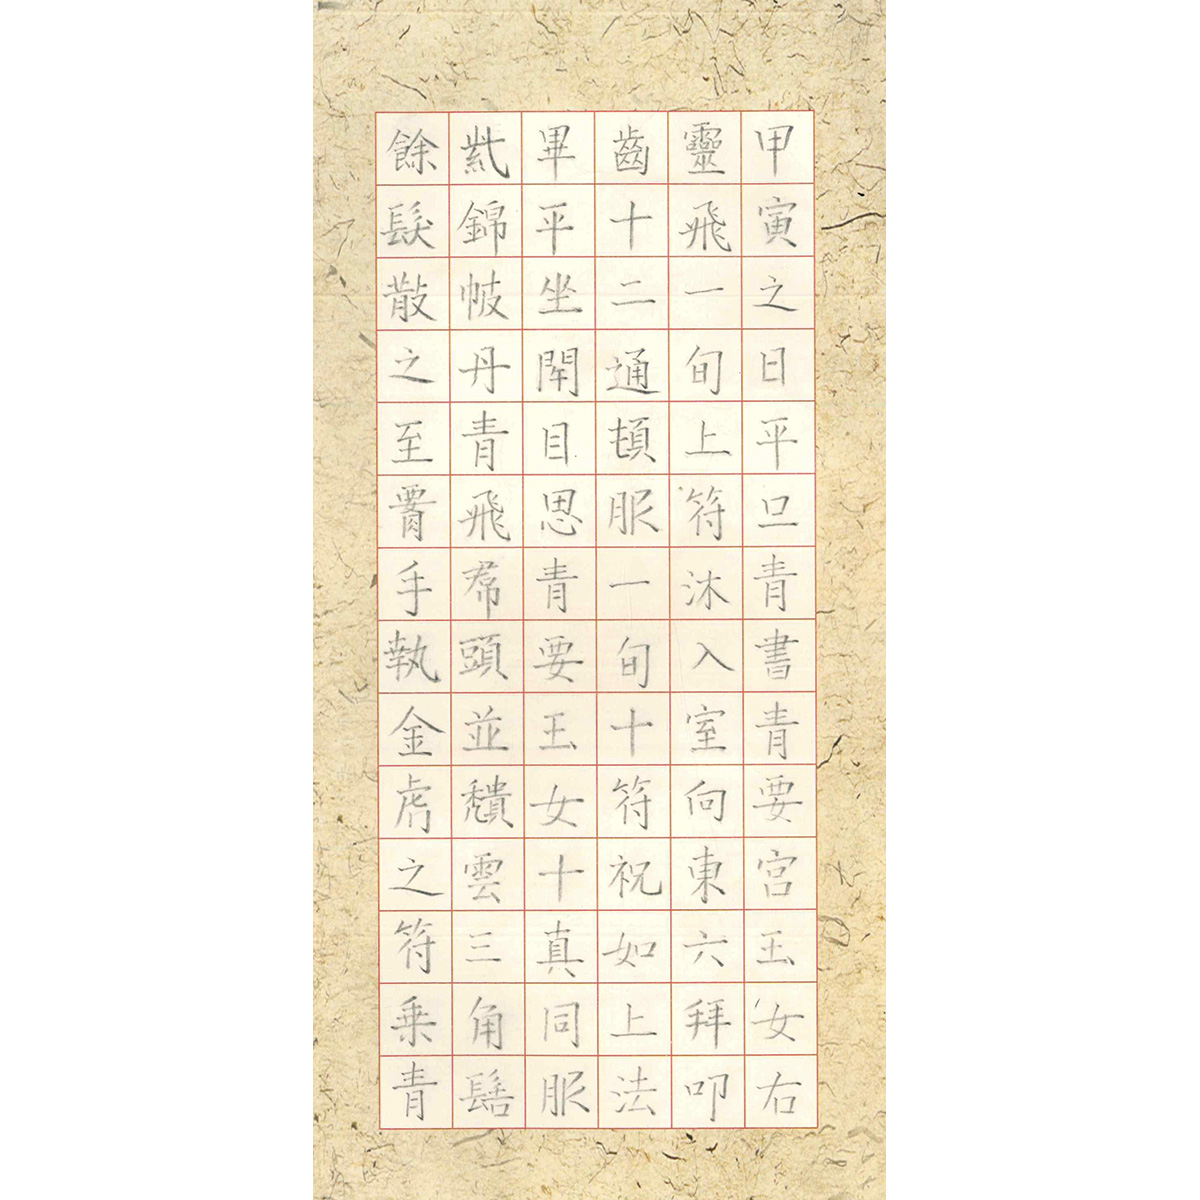 甲寅之日平旦青書青要宮玉女右
靈飛一旬上符沐入室向東六拜叩
齒十二通頓服一旬十符祝如上法
畢平坐閇目思青要玉女十真同服
紫錦帔丹青飛帬頭並穨雲三角髻
餘髮散之至腰手執金虎之符乗青